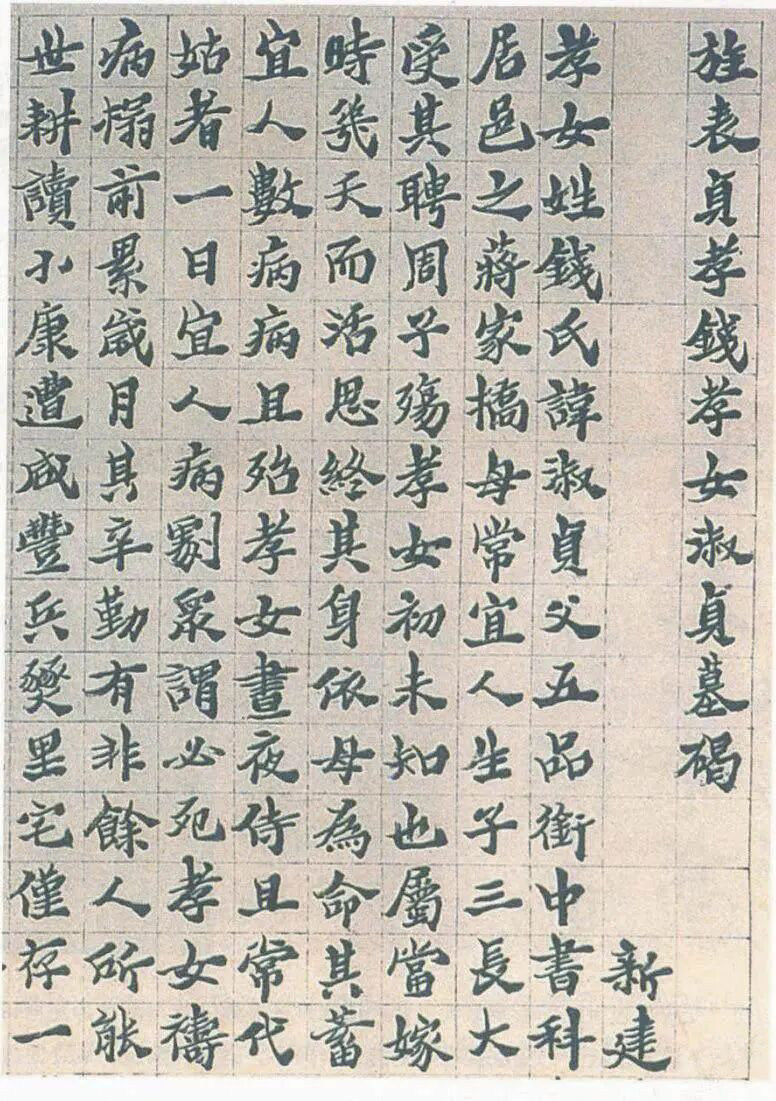 旌表貞孝錢孝女淑貞墓碣
新建
孝女姓錢氏諱淑貞父五品銜中書科
居邑之蔣家橋母常宜人生子三長大
受其聘周子殤孝女初未知也屬當嫁
時幾天而活思終其身依母為命其蓄
宜人數病病且殆孝女晝夜侍且常代
姑者一日宜人病劇眾謂必死孝女禱
病榻前累歲月其辛勤有非餘人所能
世耕讀小康遭咸豐兵燹里宅僅存一